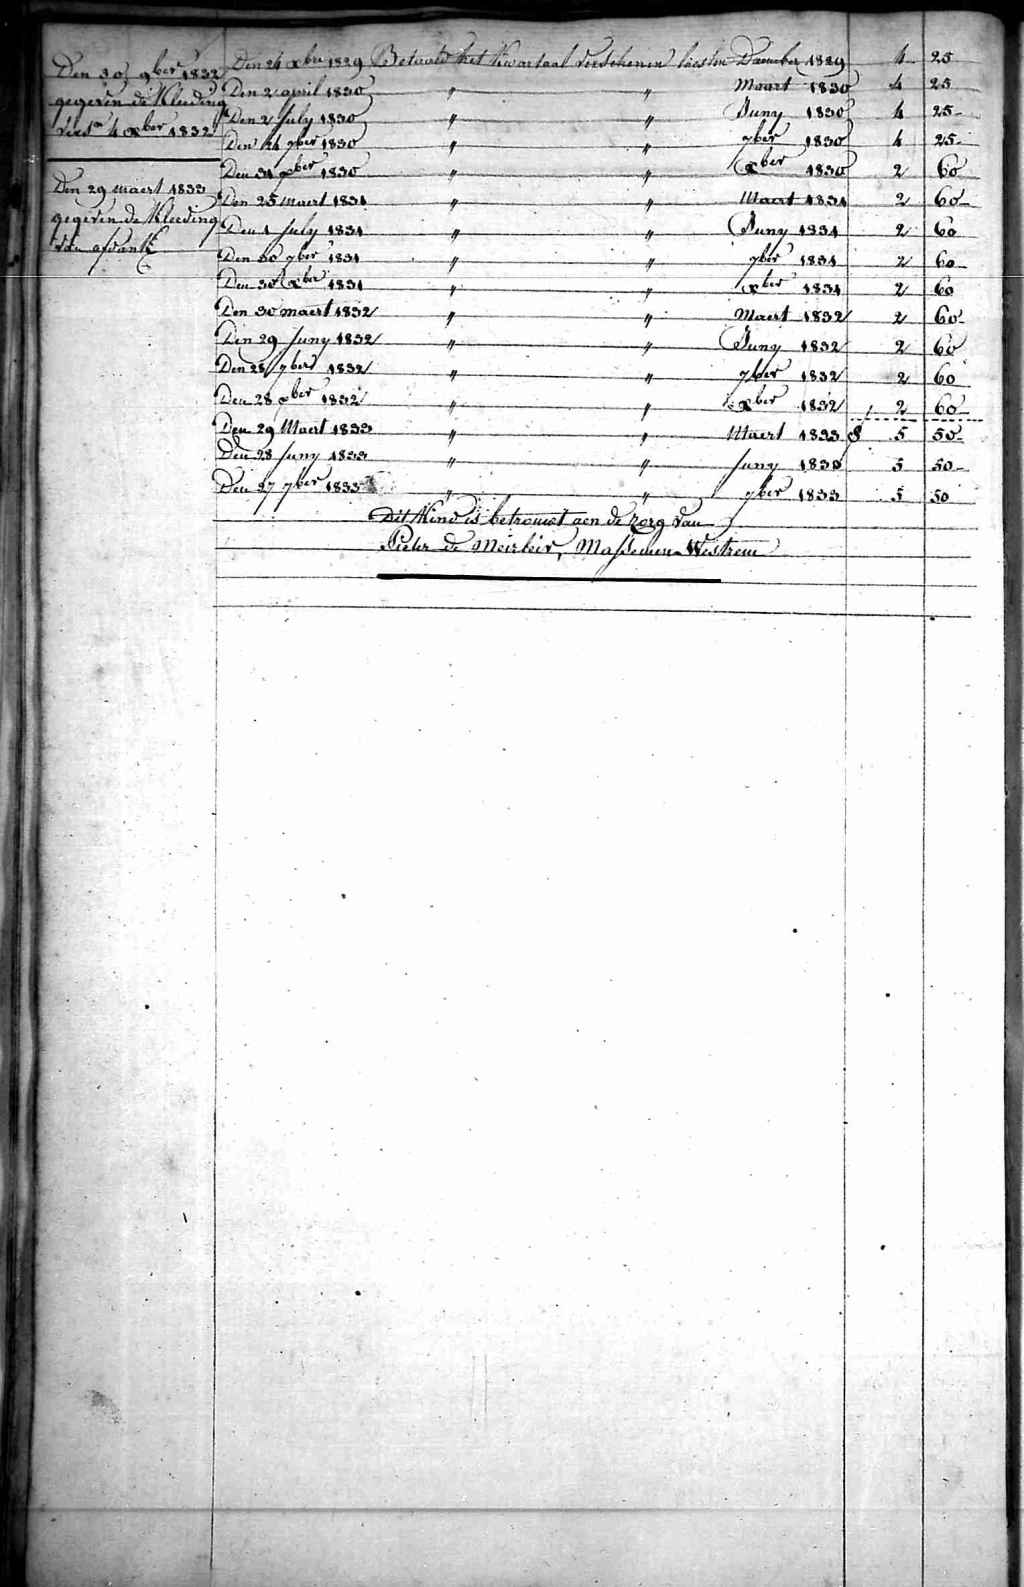 Den 30 9ber 1832
gegeven de Kleeding
4 xber 1832
Den 29 maert 1833
gegeven de Kleeding
van
Den 24 xbre 1829 Betaald het Kwartaal verschenen laesten December 1829 4 25
Den 2 april 1830 " " Maart 1830 4 25
Den 2 July 1830 " " Juny 1830 4 25-
Den 24 7ber 1830 " " 7ber 1830 4 25-
Den 31 xber 1830 " " xber 1830 2 60
Den 25 maert 1831 " " Maert 1831 2 60-
Den 1 July 1831 " " Juny 1831 2 60
Den 30 7ber 1831 " " 7ber 1831 2 60
Den 30 xber 1831 " " xber 1831 2 60
Den 30 maert 1832 " " Maert 1832 2 60-
Den 29 Juny 1832 " " Juny 1832 2 60
Den 28 7ber 1832 " " 7ber 1832 2 60
Den 28 xber 1832 " " xber 1832 2 60-
Den 29 Maert 1833 " " Maert 1833 5 50-
Den 28 Juny 1833 " " Juny 1833 5 50-
Den 27 7ber 1833 " " 7ber 1833 5 50
Dit Kind is betrouwt aen de zorg van
Pieter de Meirleir, Massemen Westrem